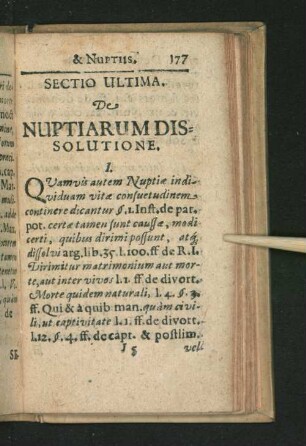 & NUPTIIS. 177
SECTIO ULTIMA.
De
NUPTIARUM DIS-
SOLUTIONE.
I.
QVamvis autem Nuptiæ indi-
viduam vitæ consuetudinem
continere dicantur §. 1. Inst. de pat.
pot. certæ tamen sunt caussæ, modi
certi, quibus dirimi possunt, atq;
dissolvi arg. lib. 35. l. 100. ff. de R. I.
Dirimitur matrimonium aut mor-
te, aut inter vivos l. 1. ff. de divort.
Morte quidem naturali, l. 4. §. 3.
ff. Qui & à quib man. quàm civi-
li, ut captivitate l. 1. ff. de divort.
l. 12. §. 4. ff. de capt. & postlim.
vel